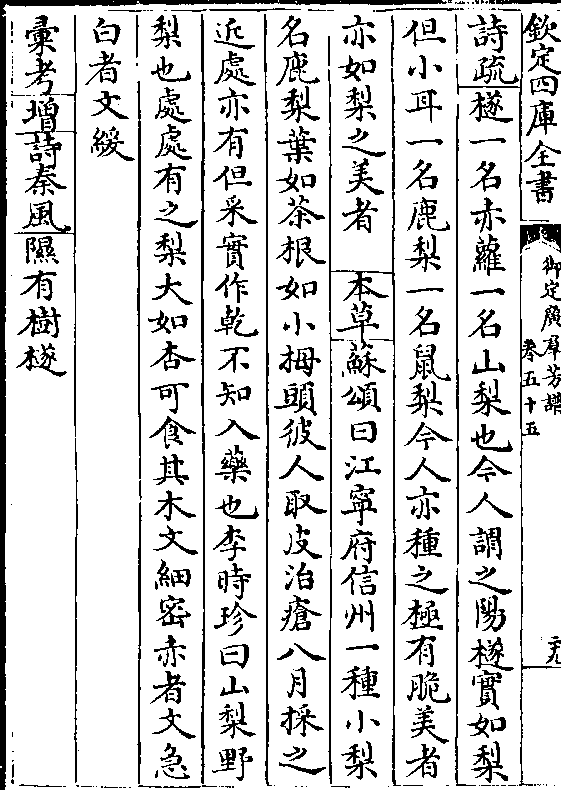 欽定四庫全書
御定廣羣芳譜
卷五十五
二九
詩疏檖一名赤蘿一名山梨也今人謂之陽檖實如梨
但小耳一名鹿梨一名鼠梨今人亦種之極有脆美者
亦如梨之美者 本草蘇頌曰江寧府信州一種小梨
名鹿梨葉如茶根如小拇頭彼人取皮治瘡八月採之
近處亦有但采實作乾不知入藥也李時珍曰山梨野
梨也處處有之梨大如杏可食其木文細密赤者文急
白者文緩
彚考增詩秦風隰有樹檖